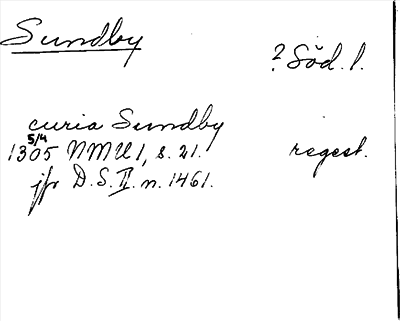 Sundby
? Söd. l.
curia Sundby
5/4
1305 NMU 1, s. 21. regest.
jfr D.S. II. n. 1461.